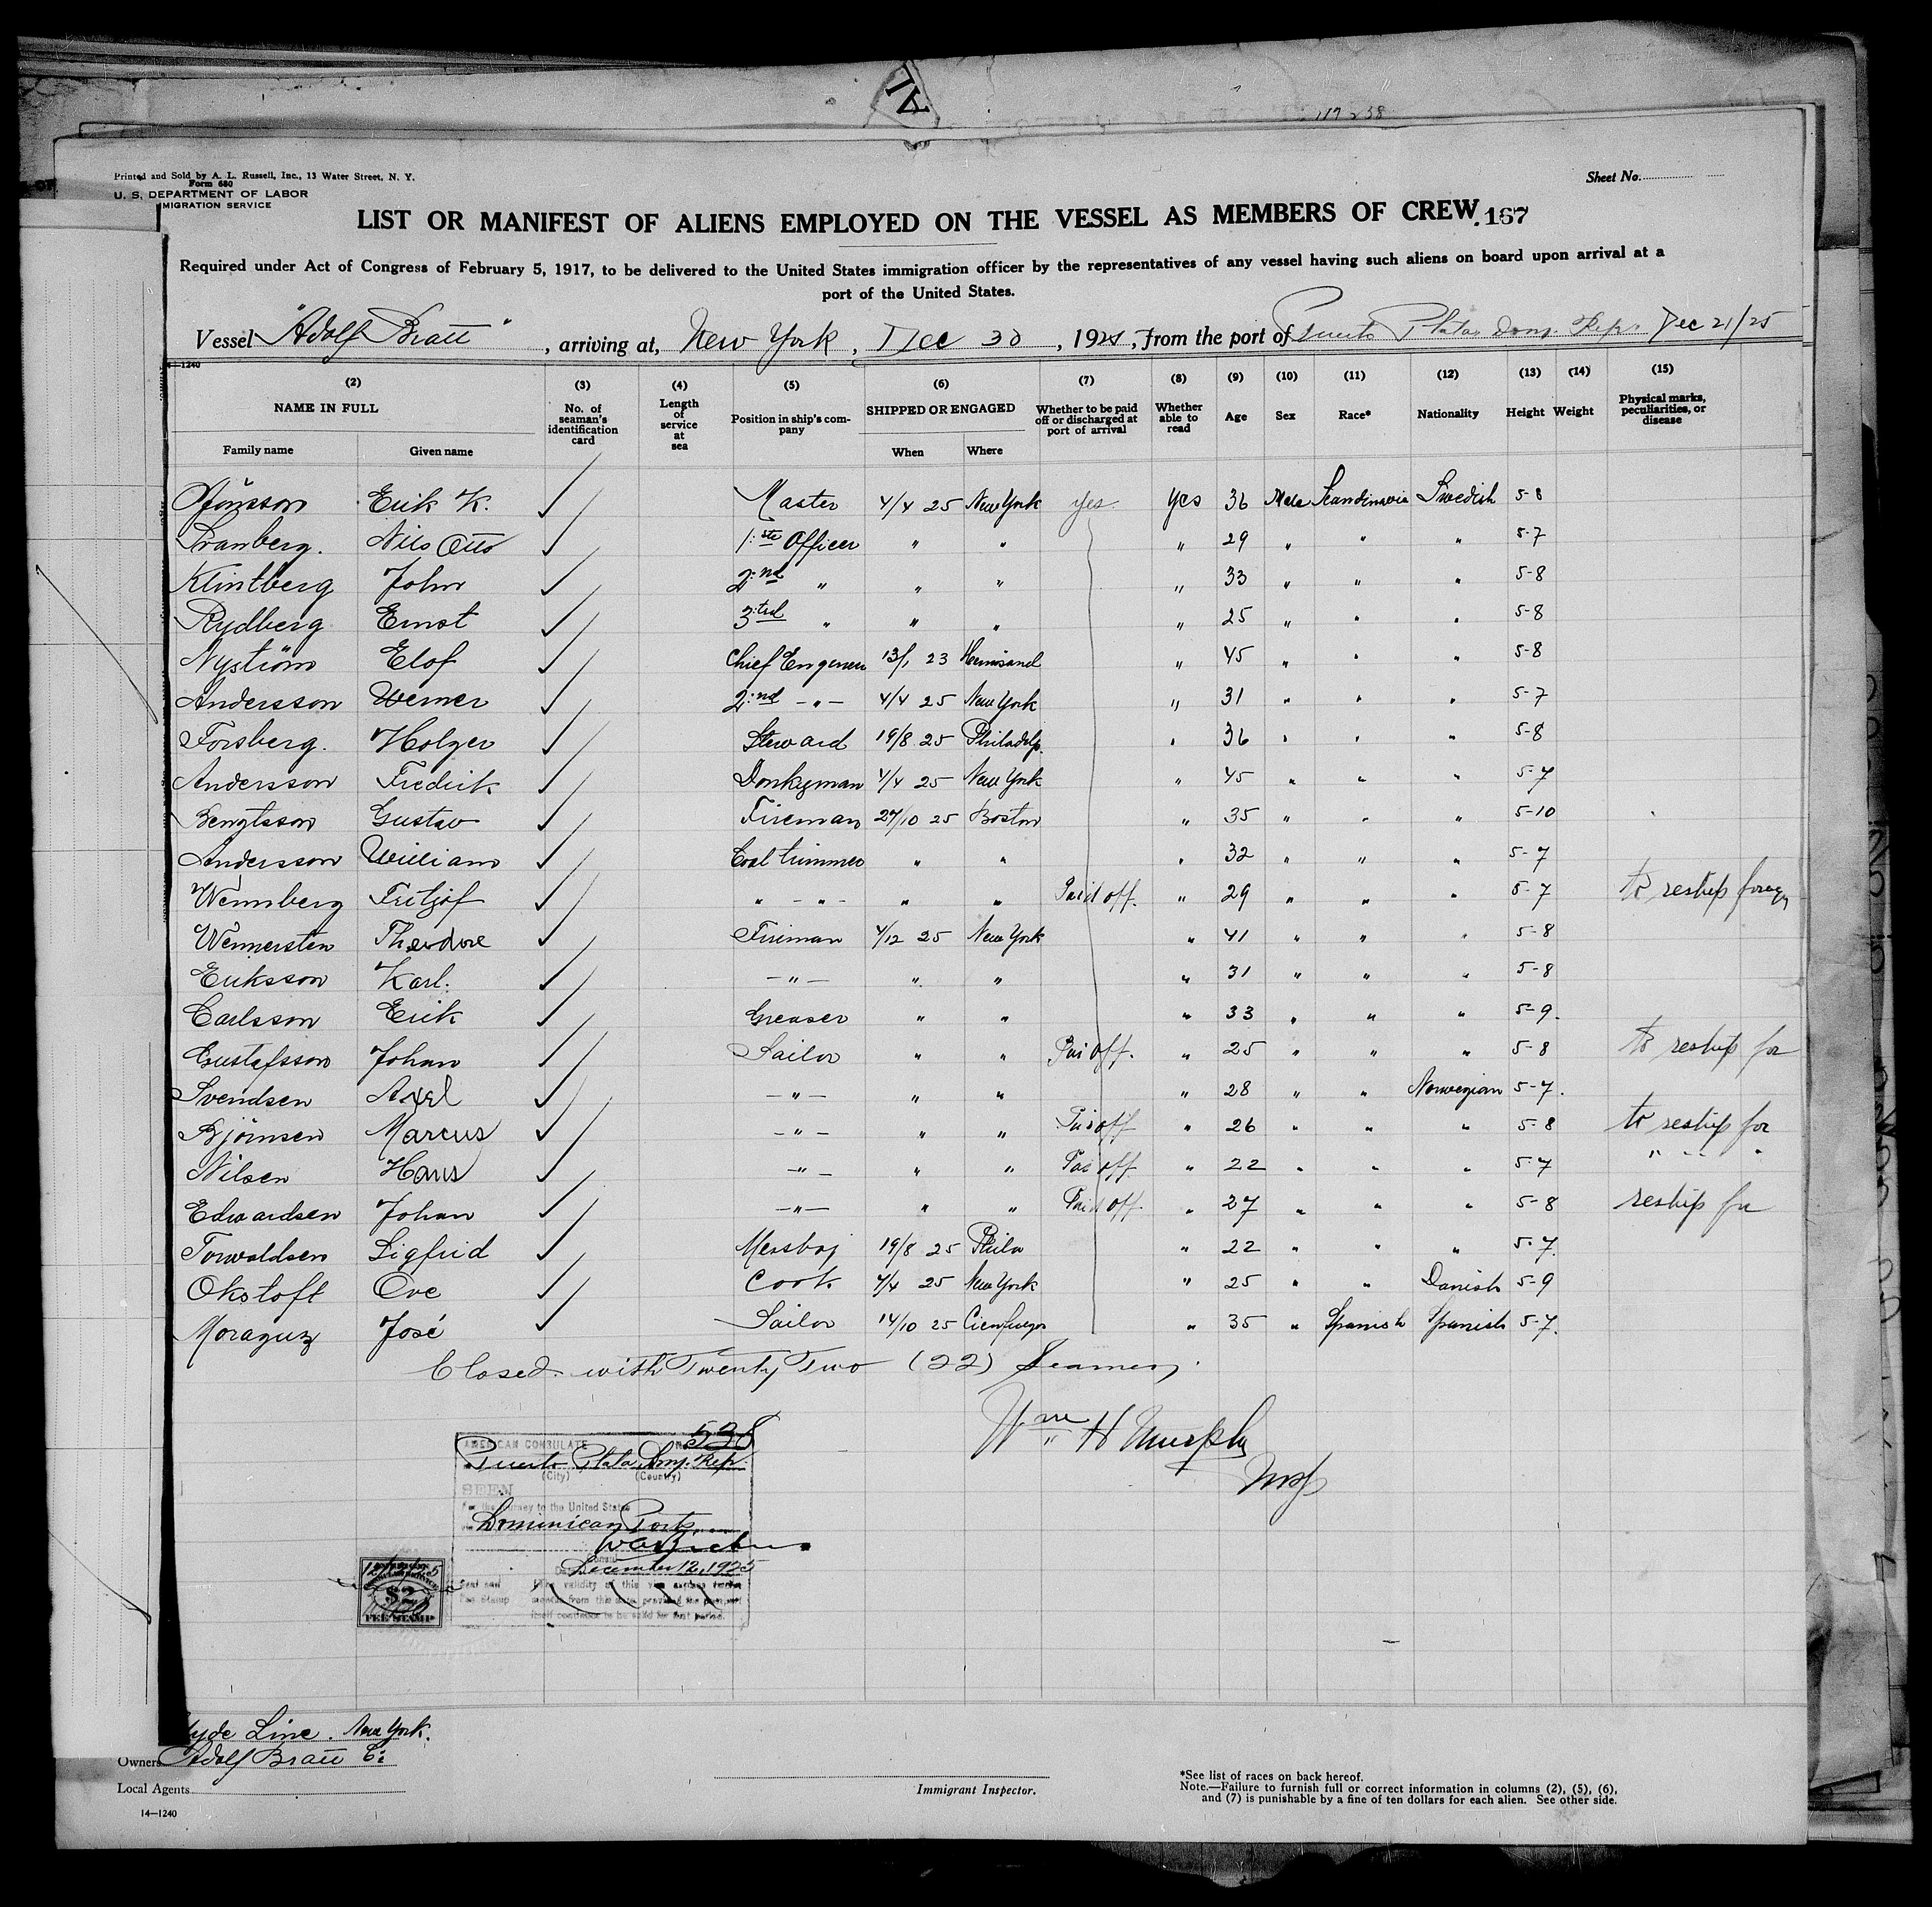 AL
Printed and Sold by A. L. Russell, Inc., 13 Water Street, N. Y.
Form 680
U. S. DEPARTMENT OF LABOR
MIGRATION SERVICE
Sheet No.
LIST OR MANIFEST OF ALIENS EMPLOYED ON THE VESSEL AS MEMBERS OF CREW 167
Required under Act of Congress of February 5, 1917, to be delivered to the United States immigration officer by the representatives of any vessel having such aliens on board upon arrival at a
port of the United States.
Vessel "Adolf Bratt", arriving at, New York, Dec 30, 192, from the port of Puerto Plata Dom. Rep. Dec 21/25
—1240
(2) (3) (4) (5) (6) (7) (8) (9) (10) (11) (12) (13) (14) (15)
NAME IN FULL No. of seaman's identification card Length of service at sea Position in ship's company SHIPPED OR ENGAGED Whether to be paid off or discharged at port of arrival Whether able to read Age Sex Race* Nationality Height Weight Physical marks, peculiarities, or disease
Family name Given name When Where
Jönsson Erik K. ✓ Master 4/4 25 New York yes Yes 36 Male Scandinavia Swedish 5-8
Svanberg. Nils Otto ✓ 1:ste Officer " " " 29 " " " 5-7
Klintberg John ✓ 2:nd " " " " 33 " " " 5-8
Rydberg Ernst ✓ 3:trd " " " " 25 " " " 5-8
Nyström Elof ✓ Chief Engeneer 13/1 23 Hernösand " 45 " " " 5-8
Andersson Werner ✓ 2:nd -"- 4/4 25 New York " 31 " " " 5-7
Forsberg. Holger ✓ Steward 19/8 25 Philadelp. " 36 " " " 5-8
Andersson Fredrik ✓ Donkyman 4/4 25 New York " 45 " " " 5-7
Bengtsson Gustav ✓ Fireman 27/10 25 Boston " 35 " " " 5-10
Andersson William ✓ Coal trimmer " " " 32 " " " 5-7
Wennberg Fritjof ✓ " -"- " " Paid off. " 29 " " " 5-7 to reship foreign
Wennersten Theodore ✓ Fireman 4/12 25 New York " 41 " " " 5-8
Eriksson Karl. ✓ -"- " " " 31 " " " 5-8
Carlsson Erik ✓ Greaser " " " 33 " " " 5-9.
Gustafsson Johan ✓ Sailor " " Pai off. " 25 " " " 5-8 to reship for
Svendsen Axel ✓ -"- " " " 28 " " Norwegian 5-7.
Bjørnsen Marcus ✓ -"- " " Pai off " 26 " " " 5-8 to reship for
Nilsen Hans ✓ -"- " " Pai off. " 22 " " " 5-7 " " "
Edwardsen Johan ✓ -"- " " Paid off. " 27 " " " 5-8 reship for
Torwaldsen Sigfrid ✓ Messboj 19/8 25 Phila " 22 " " " 5-7.
Okstoft Ove ✓ Cook 4/4 25 New York " 25 " " Danish 5-9
Moraguz José ✓ Sailor 14/10 25 Cienfuegos " 35 " Spanish Spanish 5-7.
Closed with Twenty Two (22) Seamen.
Wm H Murphy
AMERICAN CONSULATE No 538
Puerto Plata, Dom. Rep.
(City) (Country)
SEEN
For the journey to the United States
Dominican Port
Consul
December 12, 1925
Seal and Fee Stamp
The validity of this visa expires twelve
months from this date, provided the passport
itself continues to be valid for that period.
$2
FEE STAMP
yde Line. New York.
Owners Adolf Bratt Co
Local Agents
Immigrant Inspector.
14—1240
*See list of races on back hereof.
Note.—Failure to furnish full or correct information in columns (2), (5), (6),
and (7) is punishable by a fine of ten dollars for each alien. See other side.